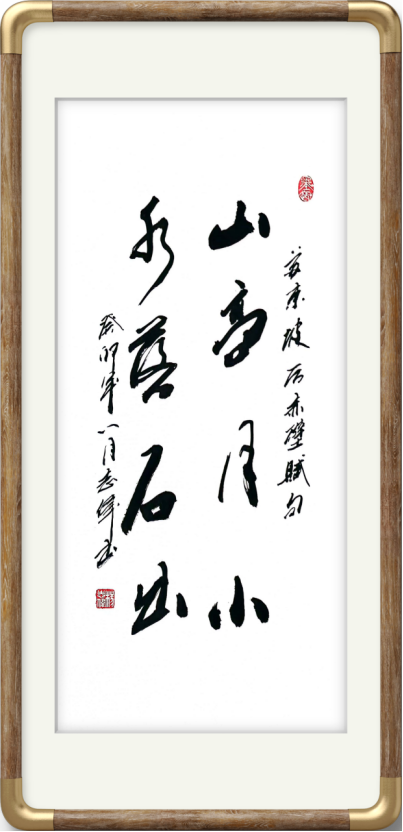 苏东坡后赤壁赋句
山高月小
水落石出
癸卯年八月志伟书